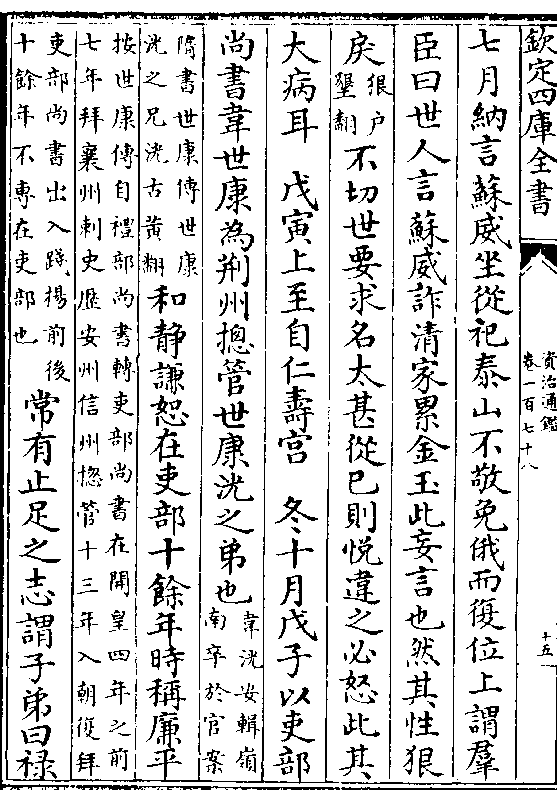 欽定四庫全書
資治通鑑
卷一百七十八
十五
七月納言蘇威坐從祀泰山不敬免俄而復位上謂羣
臣曰世人言蘇威詐清家累金玉此妄言也然其性狠
戾狠户墾翻不切世要求名太甚從已則悦違之必怒此其
大病耳 戊寅上至自仁壽宫 冬十月戊子以吏部
尚書韋世康為荆州摠管世康洸之弟也韋洸安輯嶺南卒於官案
隋書世康傳世康洸之兄洸古黄翻和静謙恕在吏部十餘年時稱廉平
按世康傳自禮部尚書轉吏部尚書在開皇四年之前
七年拜襄州刺史歴安州信州摠管十三年入朝復拜
吏部尚書出入踐揚前後十餘年不專在吏部也常有止足之志謂子弟曰禄